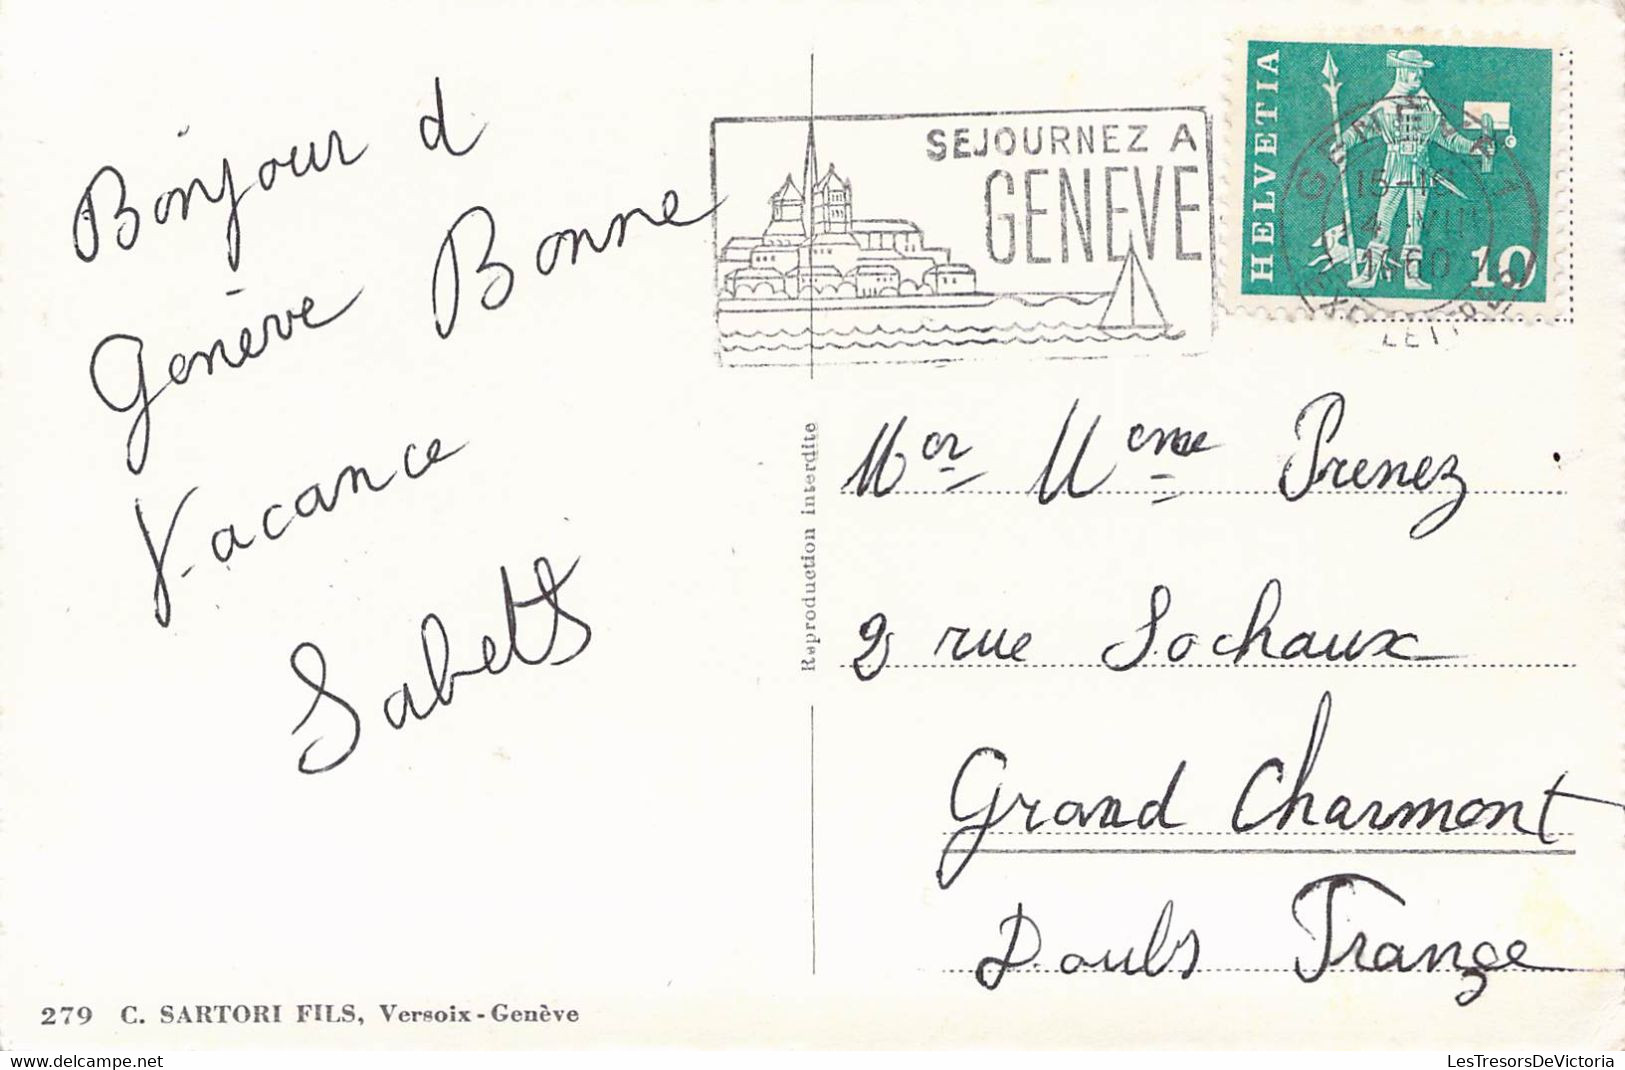 Bonjour d
Genève Bonne
Vacance
SEJOURNEZ A
GENEVE
HELVETIA
10
1960
Reproduction interdite
Mor Mme Prenez
2 rue Sochaux
Grand Charmont
Doubs France
279 C. SARTORI FILS, Versoix - Genève
LesTresorsDeVictoria